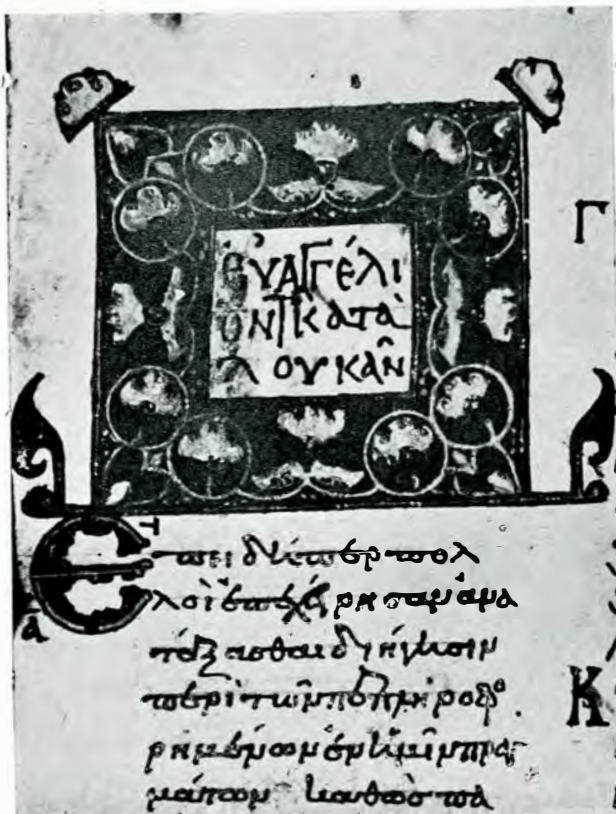 εὐαγγέλι
ον κατὰ
λουκᾶν
Ἐπειδήπερ πολ
λοὶ ἐπεχείρησαν ἀνα
τάξασθαι διήγησιν
περὶ τῶν πεπληροφο
ρημένων ἐν ἡμῖν πρα
γμάτων καθὼς πα
Γ
Κ